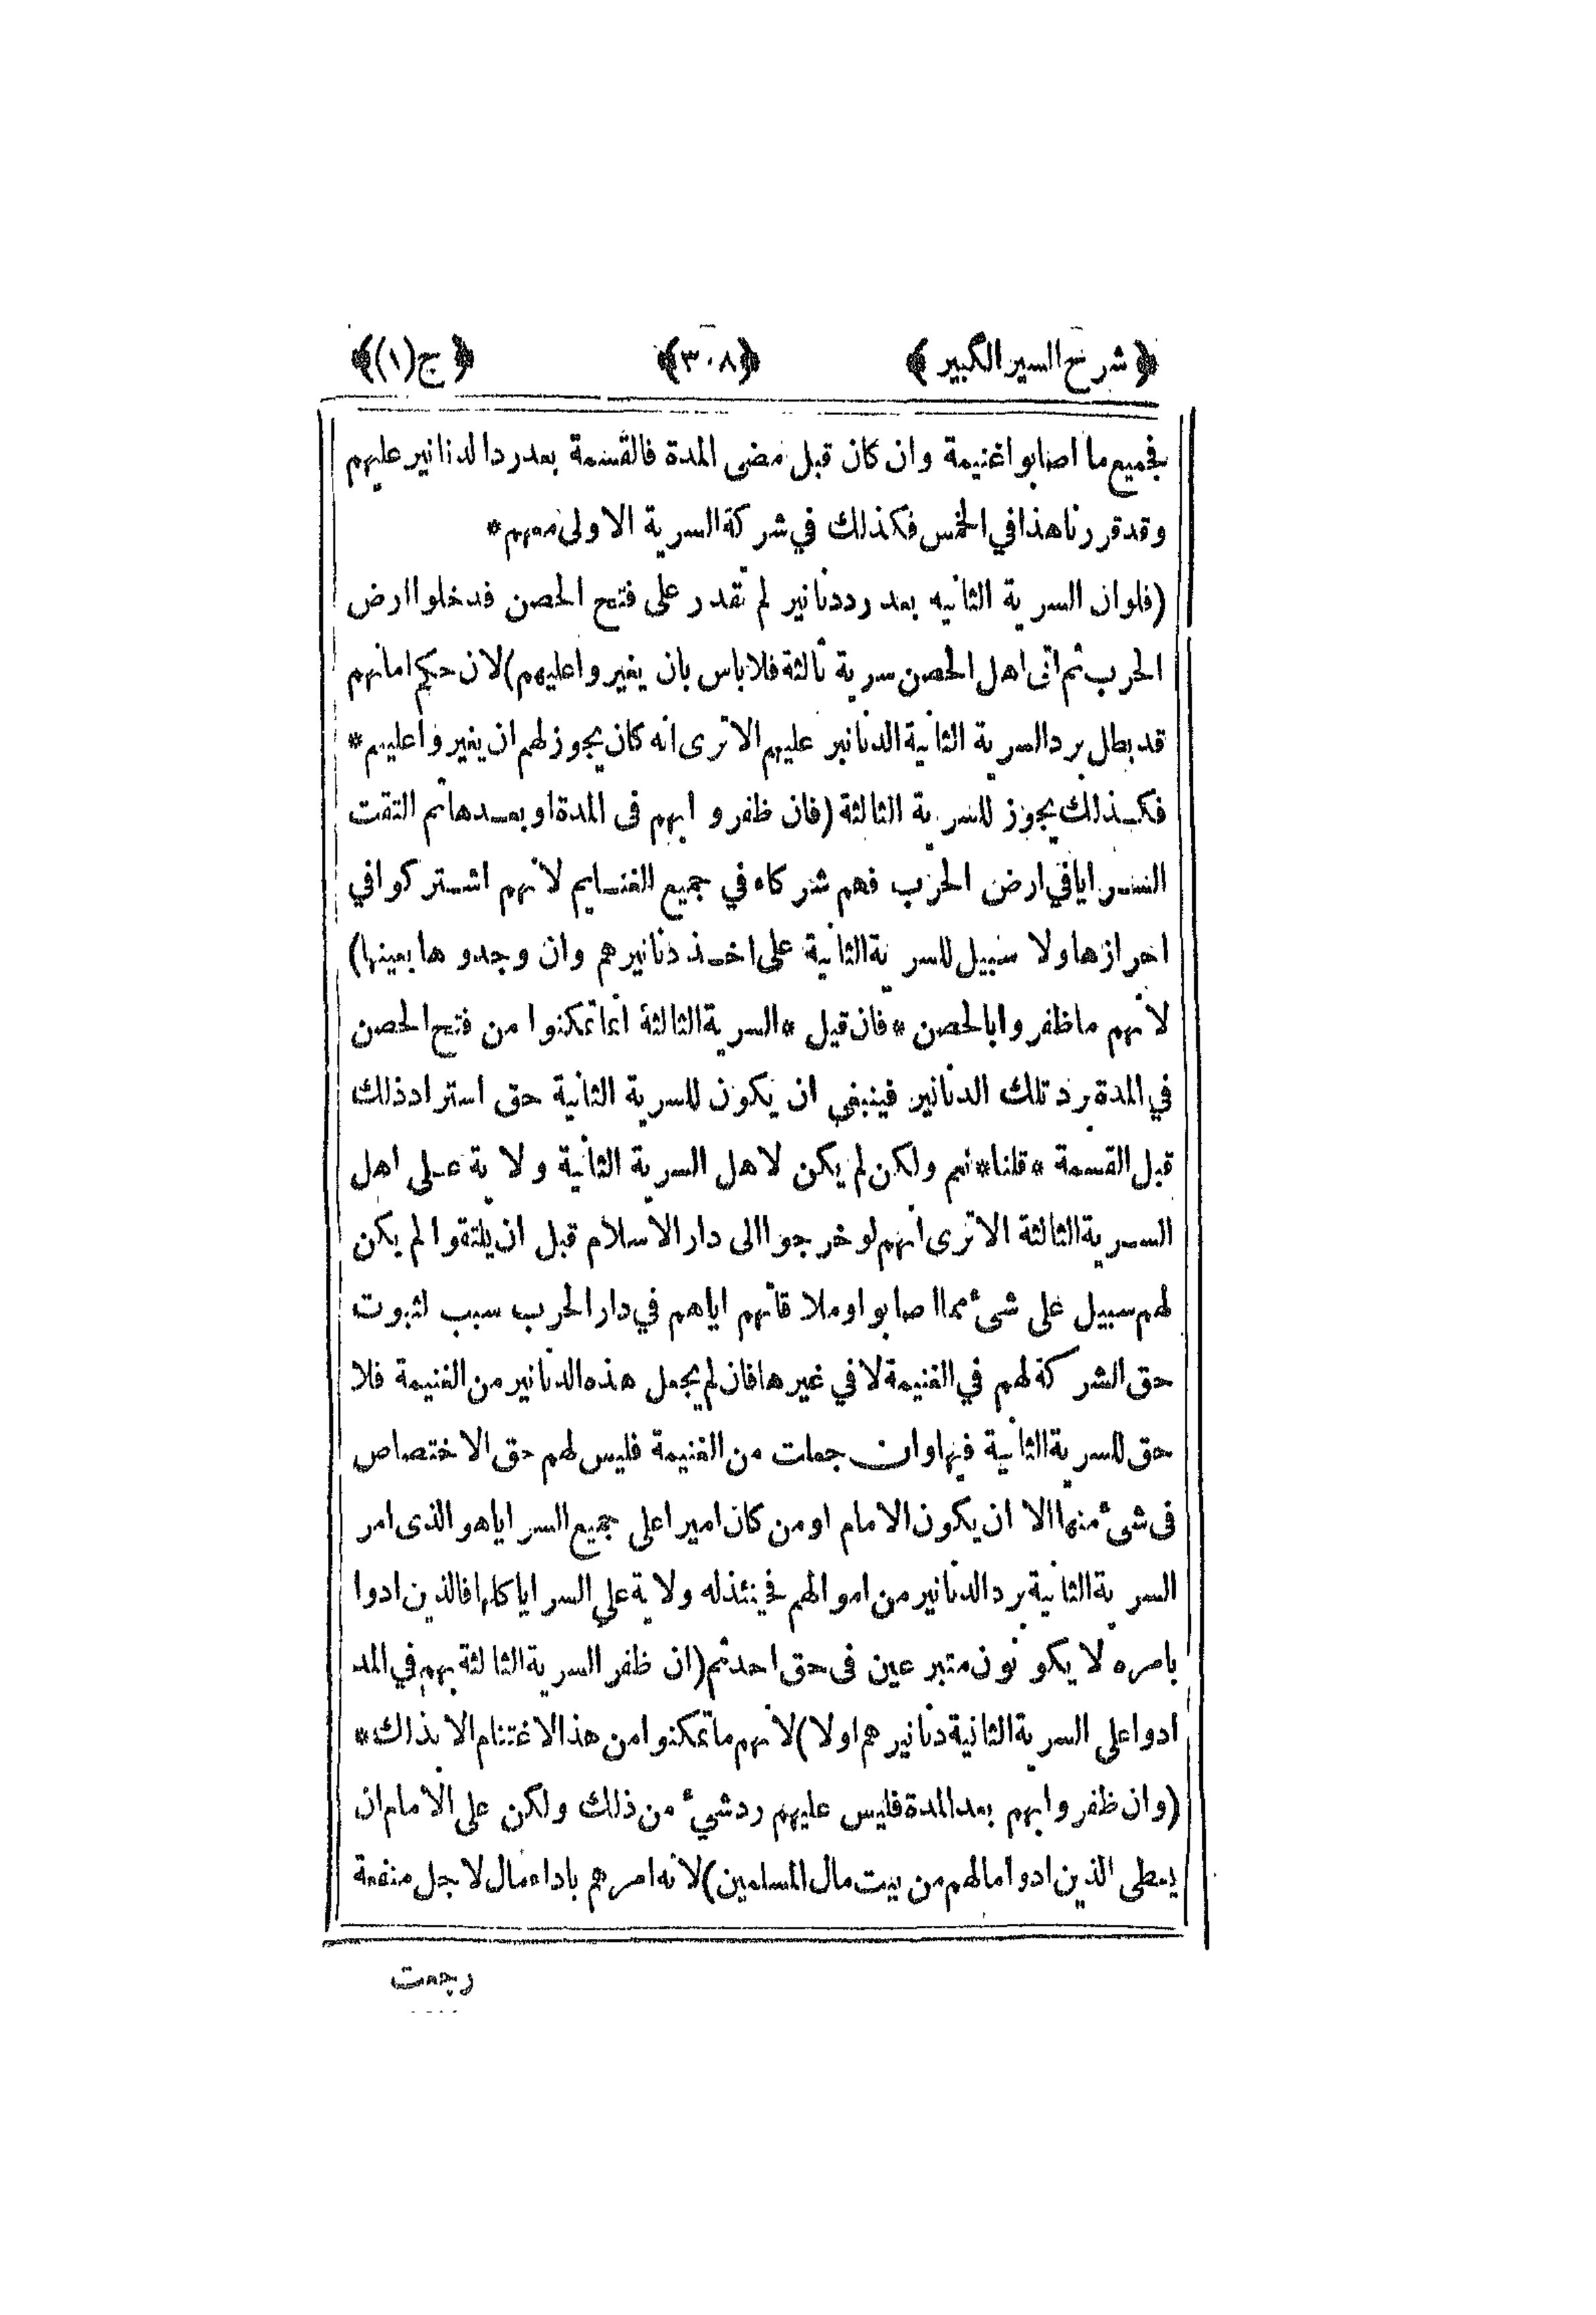 ﴿ شرح السير الكبير ﴾ ﴿٣٠٨﴾ ﴿ ج(١)﴾
فجميع ما اصابوا غنيمة وان كان قبل مضى المدة فالقسمة بعد رد الدنانير عليهم
وقد قررنا هذا في الخمس فكذلك في شركة السرية الاولى معهم*
(فلوان السرية الثانيه بعد رد دنانير لم تقدر على فتح الحصن فدخلوا ارض
الحرب ثم اتى اهل الحصن سرية ثالثة فلا باس بان يغيروا عليهم) لان حكم امانهم
قد بطل برد السرية الثانية الدنانير عليهم الا ترى انه كان يجوز لهم ان يغيروا عليهم*
فكذلك يجوز للسرية الثالثة (فان ظفروا بهم فى المدة او بعدها ثم التقت
السرايا في ارض الحرب فهم شركاء في جميع الغنايم لانهم اشتركوا في
احرازها ولا سبيل للسرية الثانية على اخذ دنانيرهم وان وجدوها بعينها)
لانهم ما ظفروا بالحصن *فان قيل *السرية الثالثة انما تمكنوا من فتح الحصن
في المدة برد تلك الدنانير فينبغي ان يكون للسرية الثانية حق استرداد ذلك
قبل القسمة *قلنا* نعم ولكن لم يكن لاهل السرية الثانية ولاية على اهل
السرية الثالثة الا ترى انهم لو خرجوا الى دار الاسلام قبل ان يلتقوا لم يكن
لهم سبيل على شىء مما اصابوا وملاقاتهم اياهم في دار الحرب سبب لثبوت
حق الشركة لهم في الغنيمة لا في غيرها فان لم يجعل هذه الدنانير من الغنيمة فلا
حق للسرية الثانية فيها وان جعلت من الغنيمة فليس لهم حق الاختصاص
فى شىء منها الا ان يكون الامام او من كان اميرا على جميع السرايا هو الذى امر
السرية الثانية برد الدنانير من اموالهم فحينئذ له ولاية على السرايا كلها فالذين ادوا
بامره لا يكونون متبرعين فى حق احد ثم (ان ظفر السرية الثالثة بهم في المد
ادوا على السرية الثانية دنانيرهم اولا) لانهم ما تمكنوا من هذا الاغتنام الا بذلك*
(وان ظفروا بهم بعد المدة فليس عليهم رد شيء من ذلك ولكن على الامام ان
يعطى الذين ادوا مالهم من بيت مال المسلمين) لانه امرهم باداء مال لاجل منفعة
رجعت